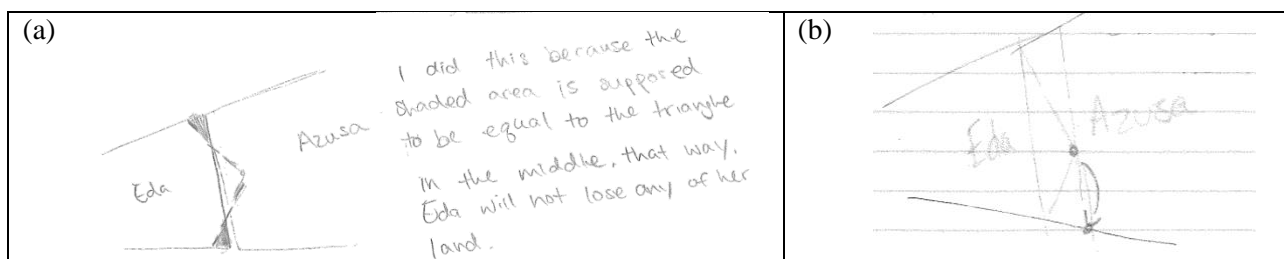 (a)
I did this because the
shaded area is supposed
to be equal to the triangle
in the middle, that way,
Eda will not lose any of her
land.
Eda
Azusa
(b)
Eda
Azusa